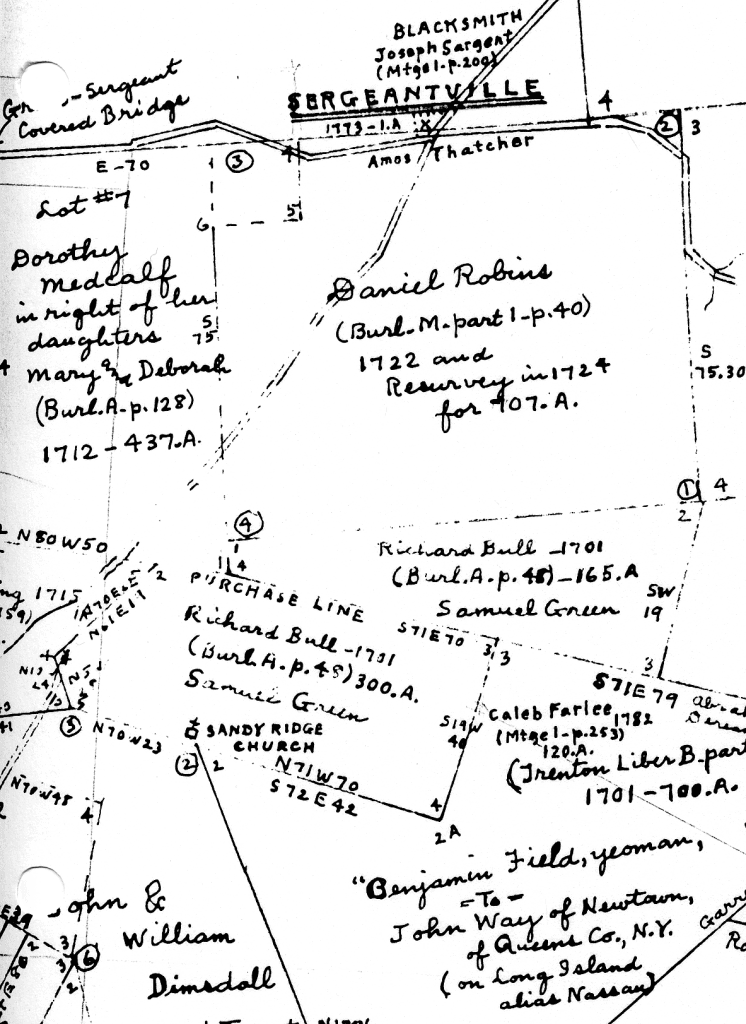 BLACKSMITH
Joseph Sargent
(Mtge1-p.200)
SERGEANTVILLE
1773-1.A
X
4
2
3
Sergeant
Covered Bridge
E-70
3
4
Amos Thatcher
Lot #7
6
5
Dorothy
Medcalf
in right of her
daughters
Mary and Deborah
(Burl.A-p.128)
1712-437.A.
S
75
4
Daniel Robins
(Burl-M-part 1-p.40)
1722 and
Resurvey in 1724
for 707.A.
S
75.30
1
4
2
N80W50
4
1
1
4
PURCHASE LINE
Richard Bull-1701
(Burl.A-p.48)-165.A
Samuel Green
SW
19
3
1715
N61E17
2
Richard Bull-1701
(Burl.A-p.48)300.A.
Samuel Green
S71E70
3
3
S71E79
S19W
40
Caleb Farlee
1782
(Mtge1-p.253)
120.A.
(Trenton Liber B-part
1701-700.A.
N70W23
5
SANDY RIDGE
CHURCH
2
2
N71W70
S72E42
4
2A
N70W48
4
"Benjamin Field, yeoman,
=To=
John Way of Newtown,
of Queens Co., N.Y.
(on Long Island
alias Nassau)
John &
William
Dimsdall
2
3
3
6
2